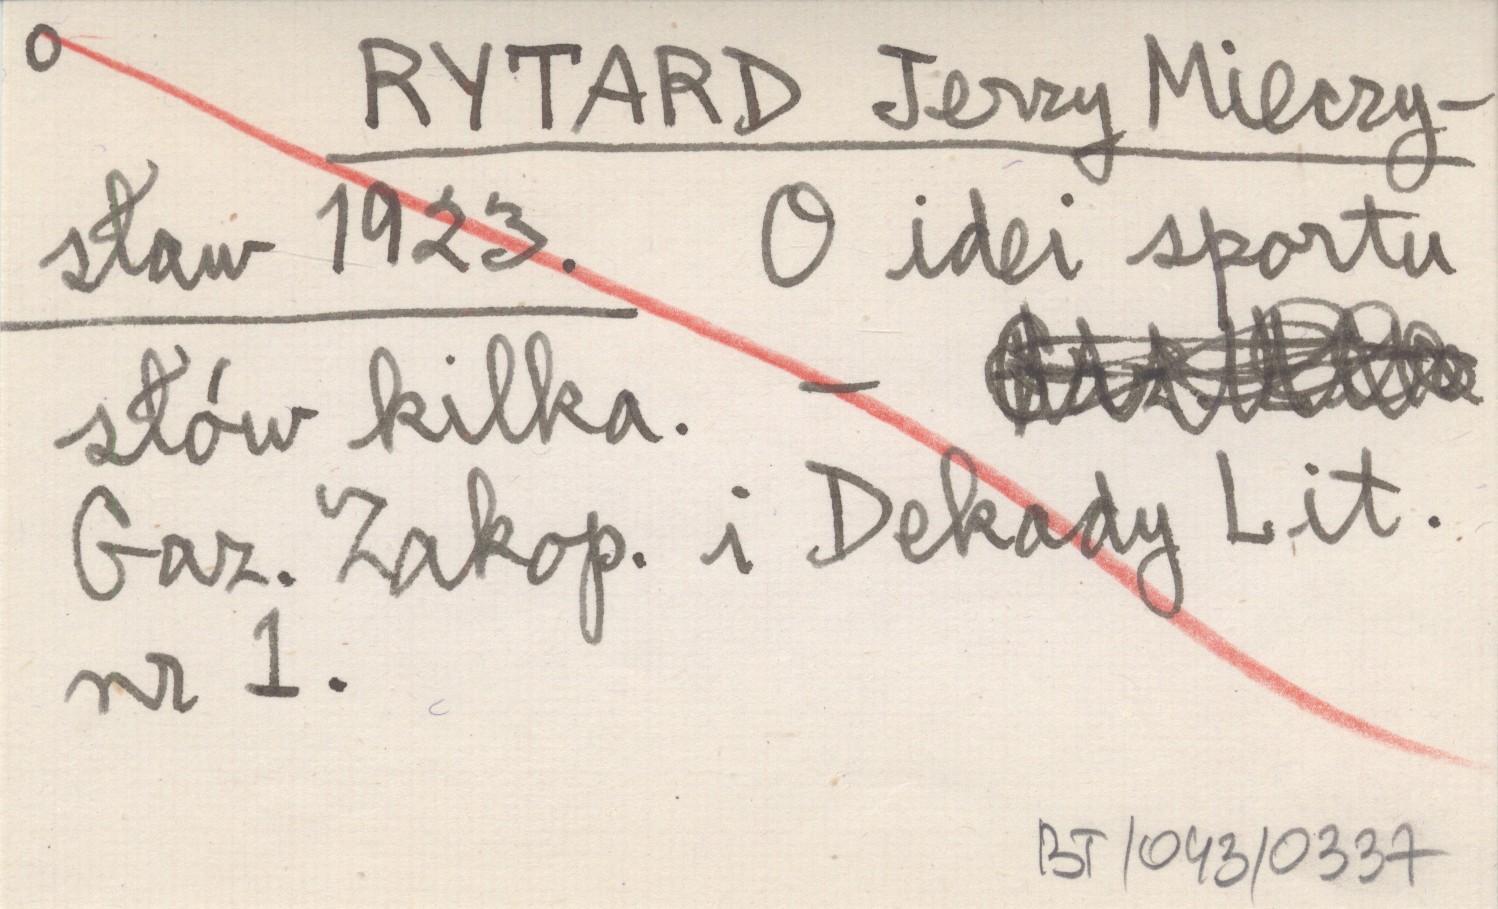 o RYTARD Jerzy Mieczy-
sław 1923. O idei sportu
słów kilka. —
Gaz. Zakop. i Dekady Lit.
nr 1.
BT/043/0337